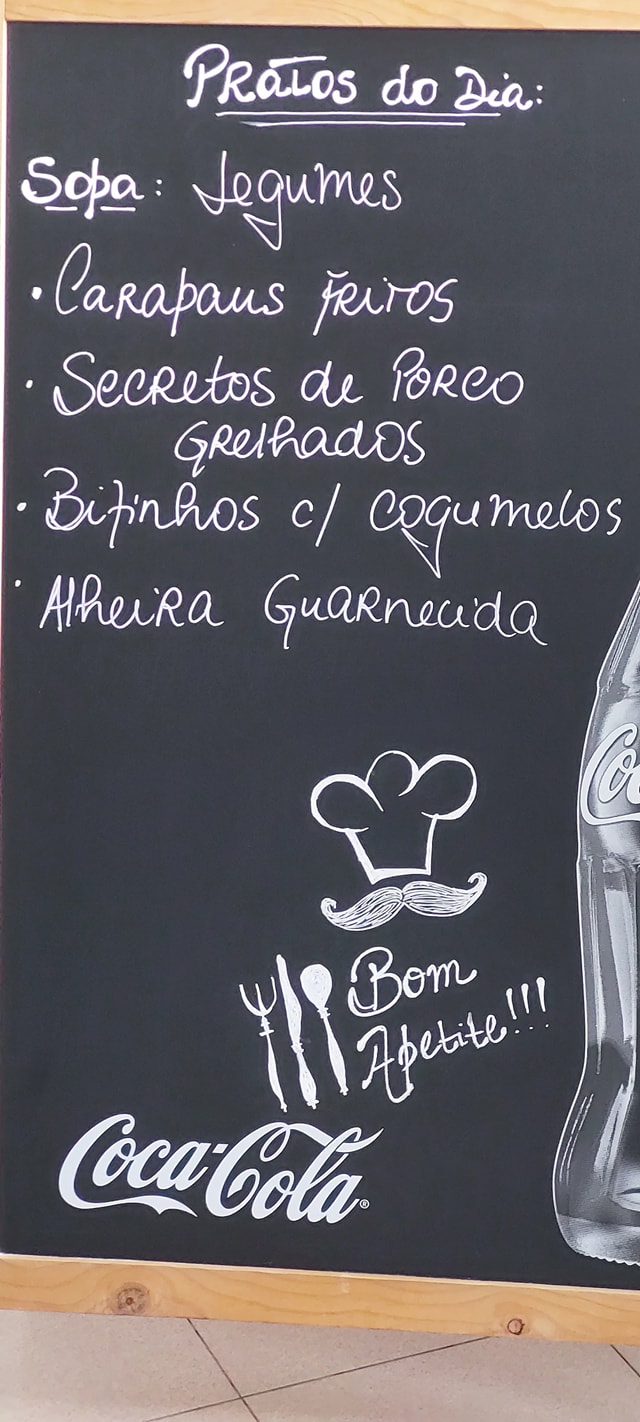 Pratos do Dia:
Sopa: Legumes
• Carapaus fritos
• Secretos de Porco
Grelhados
• Bifinhos c/ cogumelos
• Alheira Guarnecida
Bom
Apetite!!!
Coca-Cola®
Co